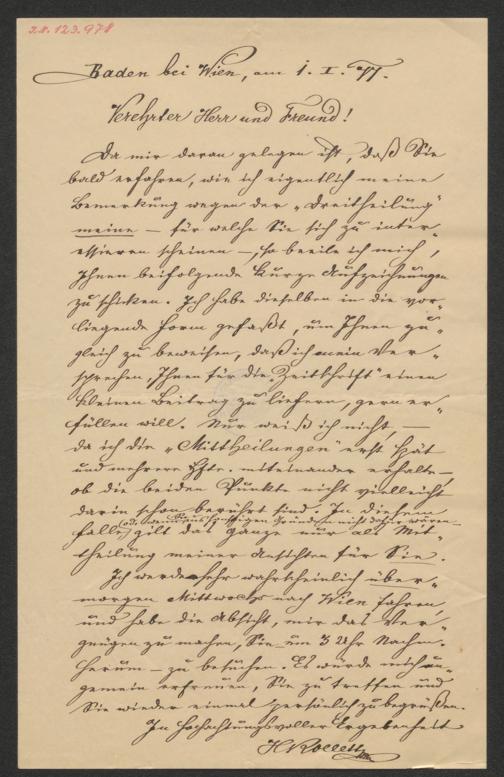 I.N. 123.978
Baden bei Wien, am 1. I. 
Verehrter Herr und Freund!
Da mir daran gelegen ist, daß Sie
bald erfahren, wie ich eigentlich meine
Bemerkung wegen der „Dreitheilung"
meine – für welche Sie sich zu inter„
essieren scheinen –, so beeile ich mich,
Ihnen beifolgende kurze Aufzeichnungen
zu schicken. Ich habe dieselben in die vor„
liegende Form gefaßt, um Ihnen zu„
gleich zu beweisen, daß ich mein Ver„
sprechen, Ihnen für die „Zeitschrift" einen
kleinen Beitrag zu liefern, gern er„
füllen will. Nur weiß ich nicht, –
da ich die „Mittheilungen" erst spät
und mehrere Hfte. miteinander erhalte –,
ob die beiden Punkte nicht vielleicht
darin schon berührt sind. In diesem
(od. wenn Sie aus sonstigen Gründen nicht dafür wären –
Falle gilt das Ganze nur als Mit„
theilung meiner Ansichten für Sie.
Ich werde sehr wahrscheinlich über„
morgen Mittwochs nach Wien fahren,
und habe die Absicht, mir das Ver„
gnügen zu machen, Sie – um 3 Uhr Nachm.
herum – zu besuchen. Es würde mich un„
gemein erfreuen, Sie zu treffen und
Sie wieder einmal persönlich zu begrüßen.
In hochachtungsvoller Ergebenheit
H Rollett